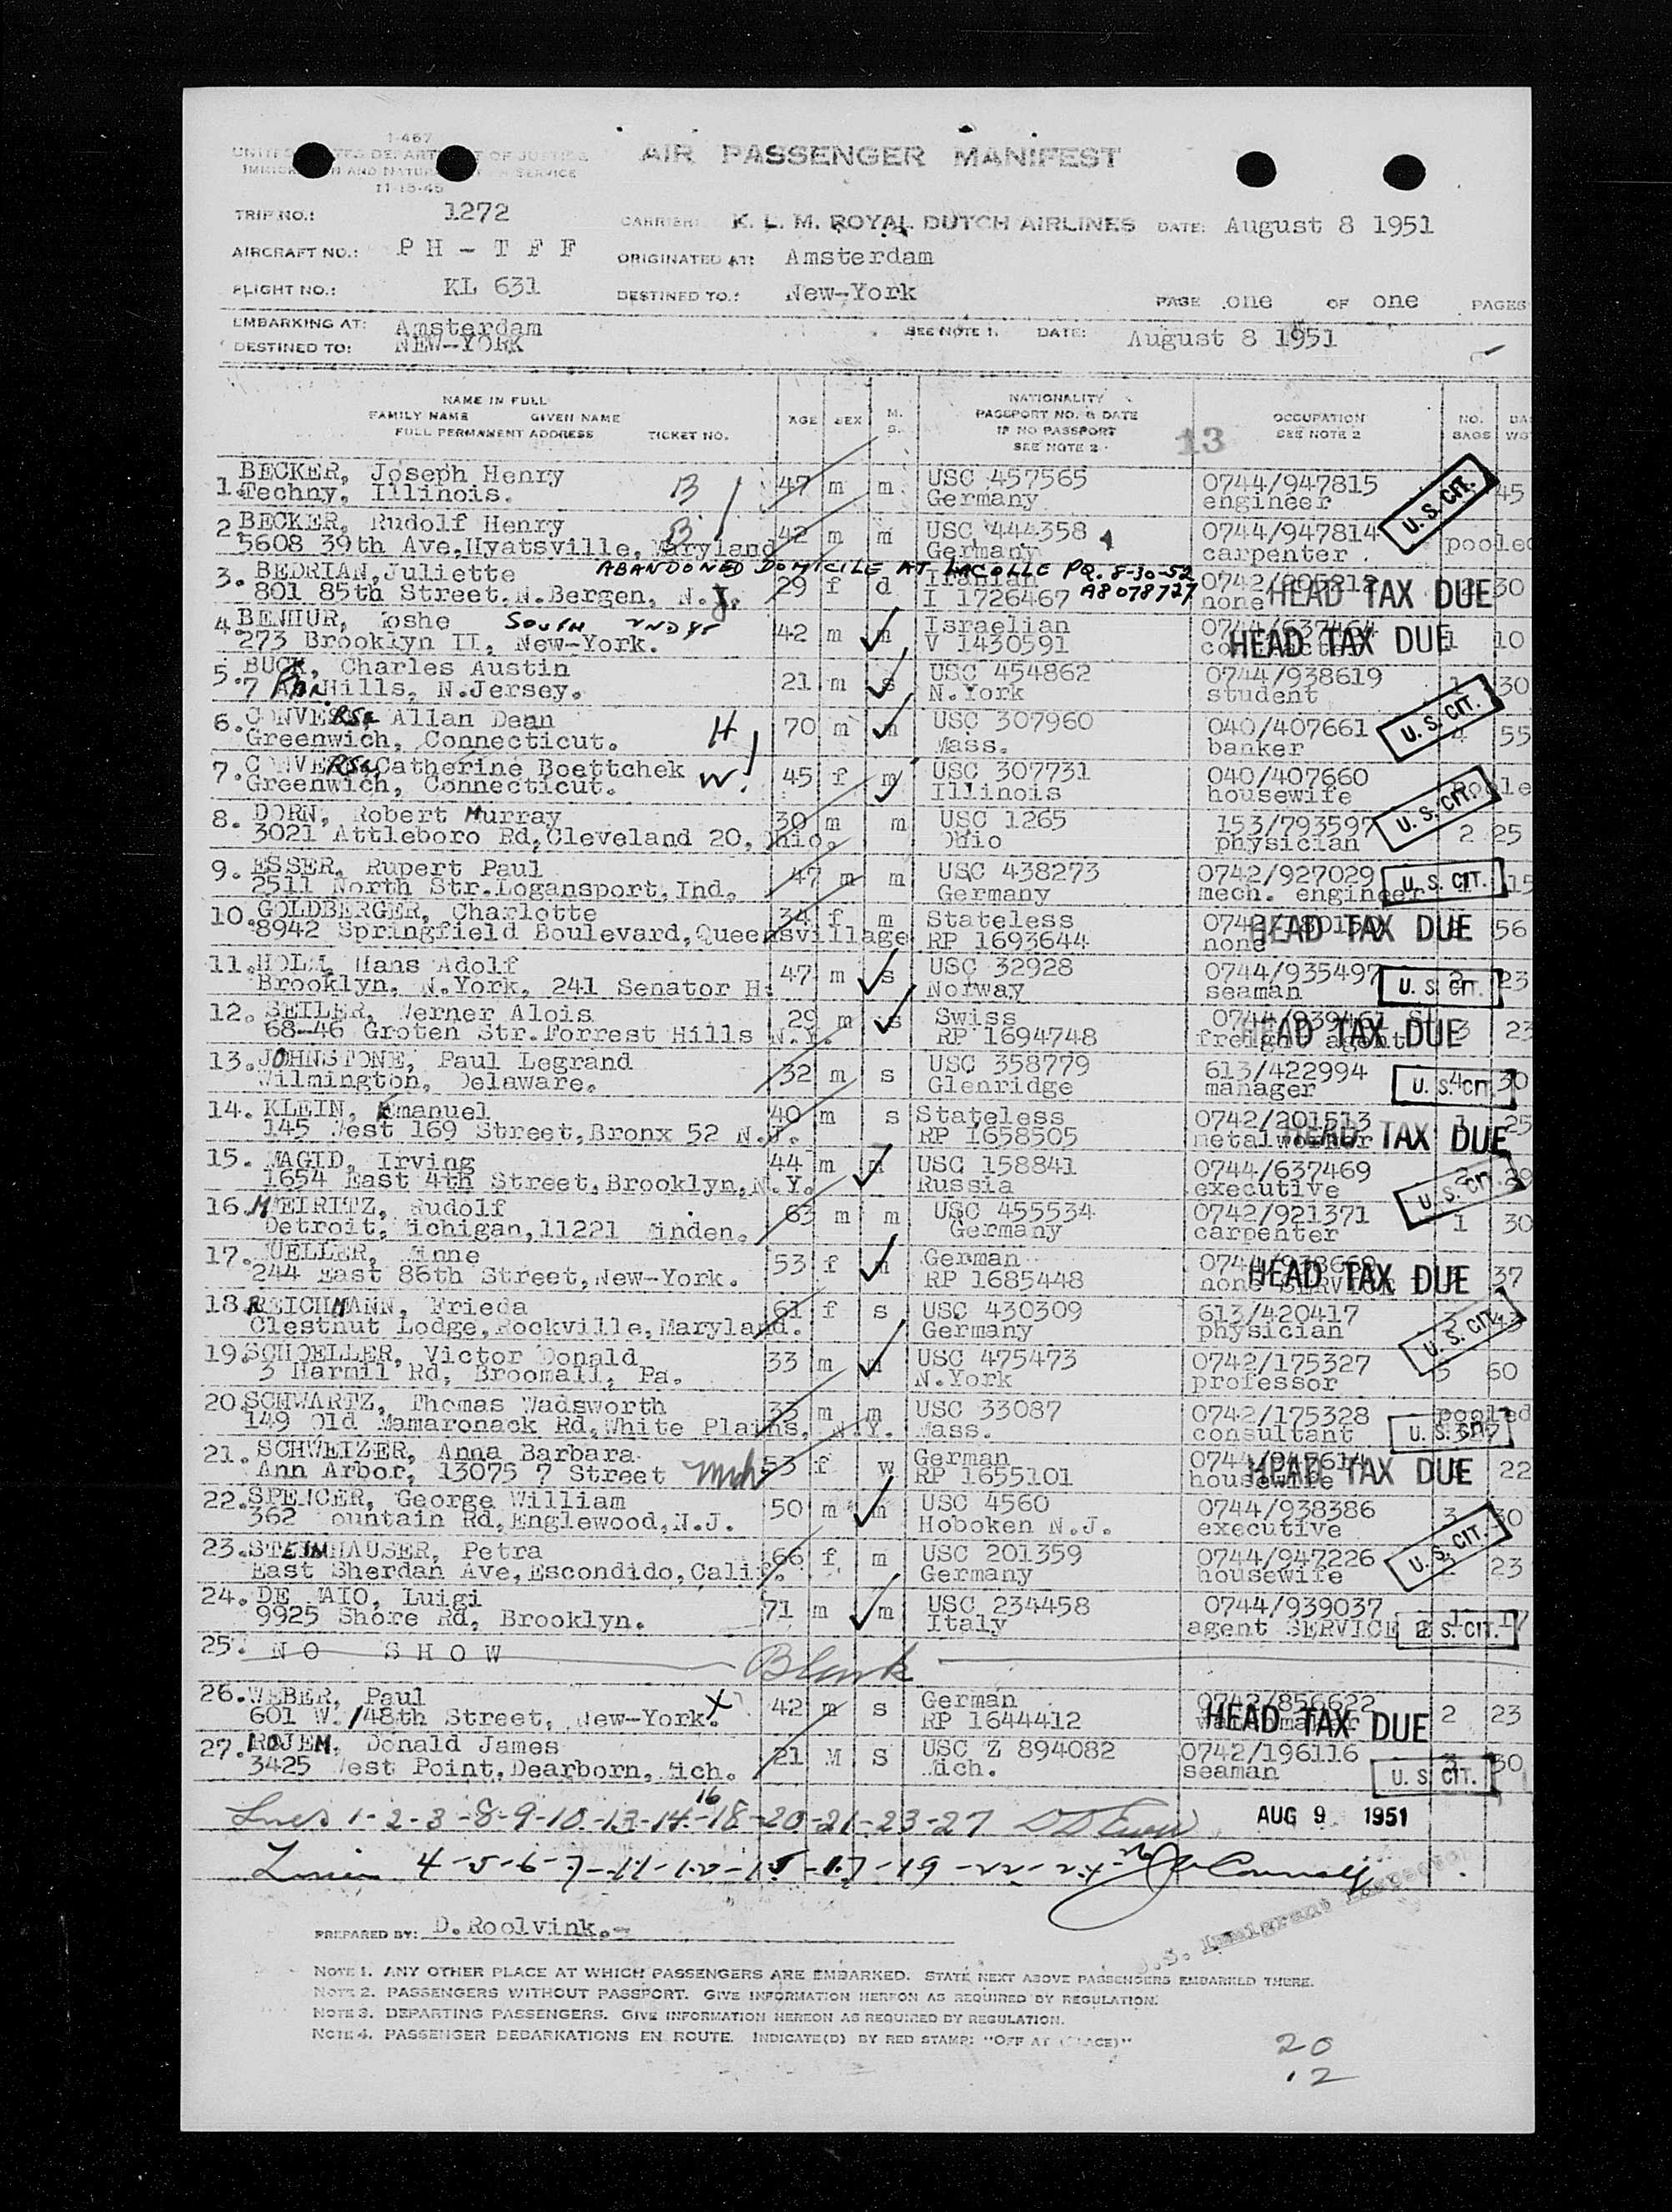 I-467
UNITED STATES DEPARTMENT OF JUSTICE
IMMIGRATION AND NATURALIZATION SERVICE
11-15-45
AIR PASSENGER MANIFEST
TRIP NO.: 1272 CARRIER: K. L. M. ROYAL DUTCH AIRLINES DATE: August 8 1951
AIRCRAFT NO.: P H - T F F ORIGINATED AT: Amsterdam
FLIGHT NO.: KL 631 DESTINED TO.: New-York PAGE one OF one PAGES
EMBARKING AT: Amsterdam SEE NOTE 1. DATE: August 8 1951
DESTINED TO: NEW-YORK
NAME IN FULL
FAMILY NAME GIVEN NAME
FULL PERMANENT ADDRESS TICKET NO.
AGE SEX M. S.
NATIONALITY
PASSPORT NO. & DATE
IF NO PASSPORT
SEE NOTE 2
13
OCCUPATION
SEE NOTE 2
NO. BAGS
1. BECKER, Joseph Henry B 47 m m USC 457565 0744/947815 U. S. CIT. 45
Techny, Illinois. Germany engineer
2 BECKER, Rudolf Henry B 42 m m USC 444358 0744/947814 pooled
5608 39th Ave, Hyatsville, Maryland Germany carpenter
ABANDONED DOMICILE AT LACOLLE PQ. 8-30-52
3. BEDRIAN, Juliette 29 f d Iranian HEAD TAX DUE 30
801 85th Street. N. Bergen, N.J. I 1726467 A8078727 none
4 BENHUR, Moshe SOUTH 42 m m Israelian 0744/637464 HEAD TAX DUE 1 10
273 Brooklyn II, New-York. V 1430591
5. BUCK, Charles Austin 21 m s USC 454862 0744/938619 30
7 Hills, N.Jersey. N.York student
6. CONVERSE Allan Dean H 70 m m USC 307960 040/407661 U. S. CIT. 4 55
Greenwich, Connecticut. Mass. banker
7. CONVERSE Catherine Boettchek W 45 f m USC 307731 040/407660
Greenwich, Connecticut. Illinois housewife
8. DORN, Robert Murray 30 m m USC 1265 153/793597 U. S. CIT. 2 25
3021 Attleboro Rd, Cleveland 20, Ohio. Ohio physician
9. ESSER, Rupert Paul 47 m m USC 438273 0742/927029 U. S. CIT. 15
2511 North Str. Logansport, Ind. Germany mech. engineer
10. GOLDBERGER, Charlotte 34 f m Stateless HEAD TAX DUE 56
8942 Springfield Boulevard, Queensvillage RP 1693644 none
11. HOLM, Hans Adolf 47 m s USC 32928 0744/935497 U. S. CIT. 23
Brooklyn, N.York, 241 Senator H. Norway seaman
12. SEILER, Werner Alois 29 m s Swiss HEAD TAX DUE 3 23
68-46 Groten Str. Forrest Hills N.Y. RP 1694748 freight agent
13. JOHNSTONE, Paul Legrand 32 m s USC 358779 613/422994 U. S. CIT. 4 30
Wilmington, Delaware. Glenridge manager
14. KLEIN, Emanuel 40 m s Stateless 0742/201513 HEAD TAX DUE 1 25
145 West 169 Street, Bronx 52 N.J. RP 1658505 metalworker
15. MAGID, Irving 44 m m USC 158841 0744/637469 U. S. CIT.
1654 East 4th Street, Brooklyn, N.Y. Russia executive
16. MEIRITZ, Rudolf 63 m m USC 455534 0742/921371 1 30
Detroit, Michigan, 11221 Minden. Germany carpenter
17. MUELLER, Anne 53 f m German HEAD TAX DUE 37
244 East 86th Street, New-York. RP 1685448 none
18. REICHMANN, Frieda 61 f s USC 430309 613/420417 U. S. CIT. 3 43
Clestnut Lodge, Rockville, Maryland. Germany physician
19. SCHOELLER, Victor Donald 33 m m USC 475473 0742/175327 60
3 Harmil Rd, Broomall, Pa. N.York professor
20. SCHWARTZ, Thomas Wadsworth 33 m m USC 33087 0742/175328 U. S. CIT. pooled
149 Old Mamaronack Rd, White Plains, N.Y. Mass. consultant
21. SCHWEIZER, Anna Barbara 53 f w German 0744/947614 HEAD TAX DUE 22
Ann Arbor, 13075 7 Street Mich RP 1655101 housewife
22. SPENCER, George William 50 m m USC 4560 0744/938386 3 30
362 Mountain Rd, Englewood, N.J. Hoboken N.J. executive
23. STEINHAUSER, Petra 66 f m USC 201359 0744/947226 U. S. CIT. 23
East Sherdan Ave, Escondido, Calif. Germany housewife
24. DE MAIO, Luigi 71 m m USC 234458 0744/939037 U. S. CIT. 17
9925 Shore Rd, Brooklyn. Italy agent SERVICE
25. N O S H O W Blank
26. WEBER, Paul X 42 m s German 0742/856622 HEAD TAX DUE 2 23
601 W. 148th Street, New-York. RP 1644412
27. ROJEM, Donald James 21 M S USC Z 894082 0742/196116 U. S. CIT. 3 30
3425 West Point, Dearborn, Mich. Mich. seaman
Lines 1-2-3-8-9-10-13-14-16-18-20-21-23-27 AUG 9 1951
Lines 4-5-6-7-11-12-15-17-19-22-24-26
U.S. Immigrant Inspector
PREPARED BY: D. Roolvink.-
NOTE 1. ANY OTHER PLACE AT WHICH PASSENGERS ARE EMBARKED. STATE NEXT ABOVE PASSENGERS EMBARKED THERE.
NOTE 2. PASSENGERS WITHOUT PASSPORT. GIVE INFORMATION HEREON AS REQUIRED BY REGULATION.
NOTE 3. DEPARTING PASSENGERS. GIVE INFORMATION HEREON AS REQUIRED BY REGULATION.
NOTE 4. PASSENGER DEBARKATIONS EN ROUTE. INDICATE(D) BY RED STAMP: "OFF AT (PLACE)"
20
12